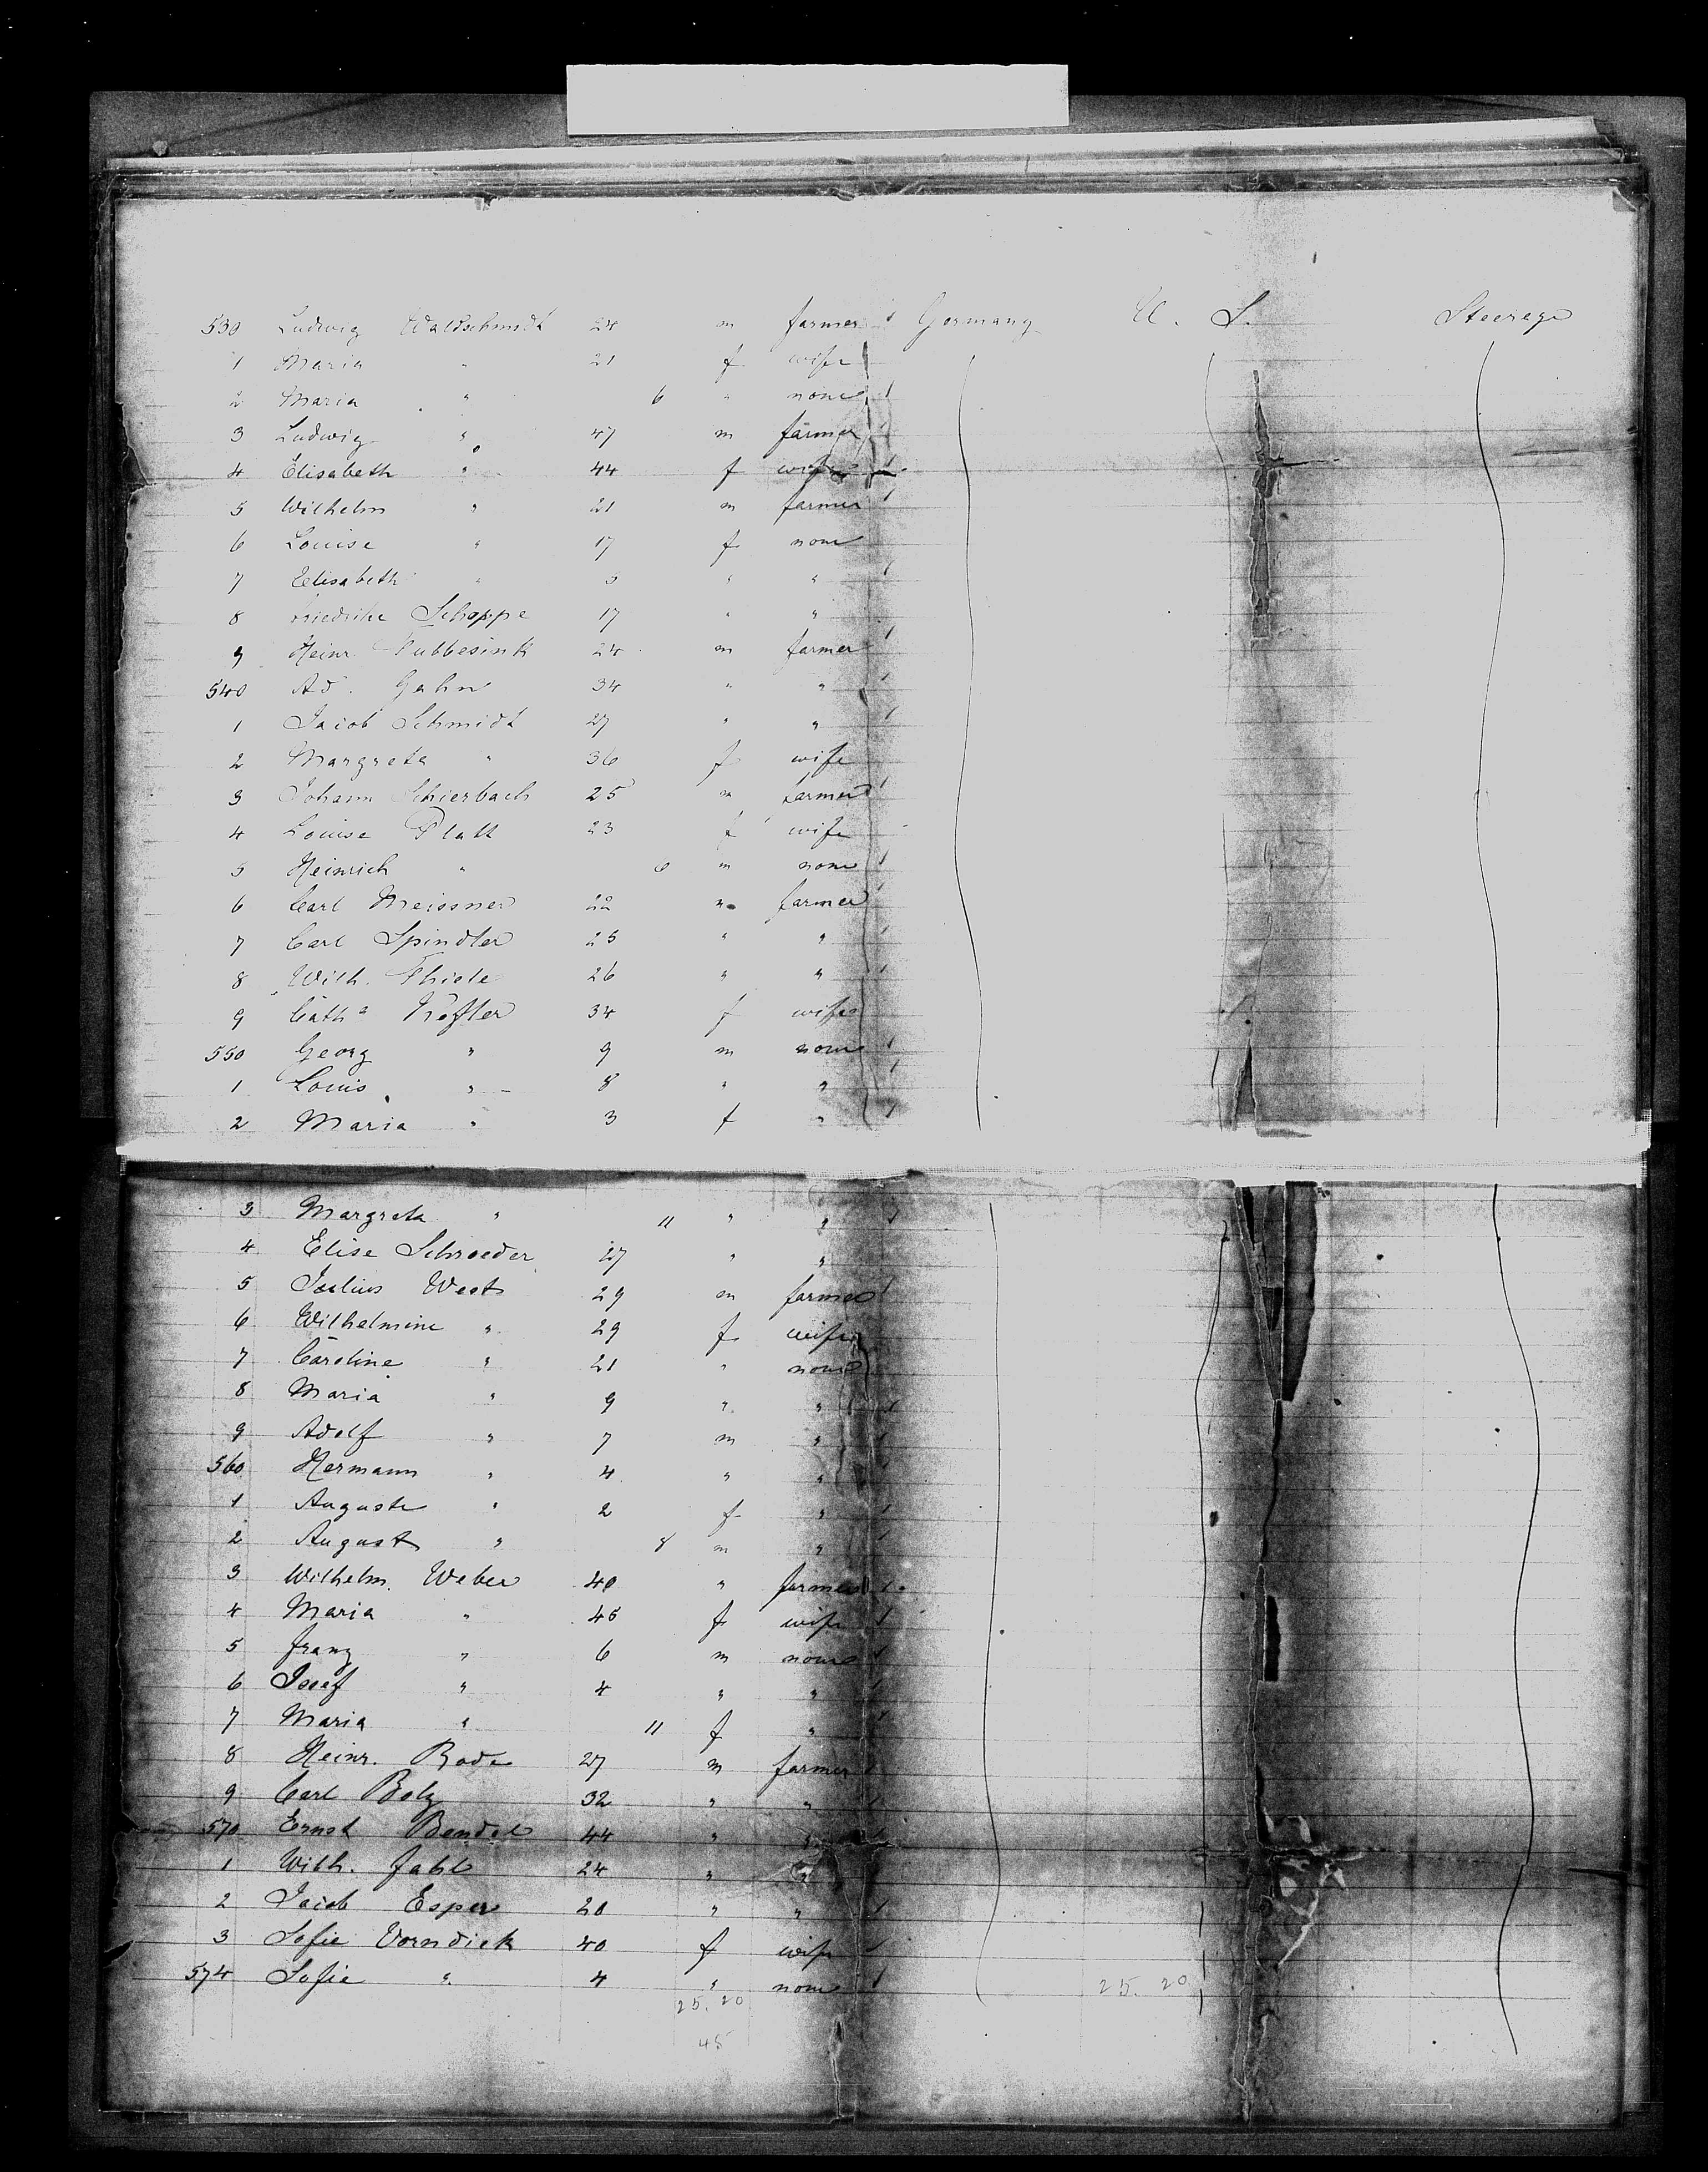 530 Ludwig Waldschmidt 24 m farmer Germany U. S. Steerage
1 Maria " 21 f wife
2 Maria " 6 " none
3 Ludwig " 47 m farmer
4 Elisabeth " 44 f wife
5 Wilhelm " 21 m farmer
6 Louise " 17 f none
7 Elisabeth " " "
8 Friedrike Schoppe 17 " "
9 Heinr. 24 m farmer
540 Ad. Gahn 34 " "
1 Jacob Schmidt 27 " "
2 Margreta " 36 f wife
3 Johann Schierbach 25 m farmer
4 Louise Platt 23 f wife
5 Heinrich " 6 m none
6 Carl Meissner 22 " farmer
7 Carl Spindler 25 " "
8 Wilh. Thiele 26 " "
9 Catha 34 f wife
550 Georg " 9 m none
1 Louis " 8 " "
2 Maria " 3 f "
3 Margreta " 11 " "
4 Elise Schroeder 27 " "
5 Julius West 29 m farmer
6 Wilhelmine " 29 f wife
7 Caroline " 21 " none
8 Maria " 9 " "
9 Adolf " 7 m "
560 Hermann " 4 " "
1 Auguste " 2 f "
2 August " 8 m "
3 Wilhelm Weber 40 " farmer
4 Maria " 45 f wife
5 Franz " 6 m none
6 Josef " 4 " "
7 Maria " 11 f "
8 Heinr. Bode 27 m farmer
9 Carl Bolz 32 " "
570 Ernst Bendel 44 " "
1 Wilh. Fahl 24 " "
2 Jacob Esper 20 " "
3 Sofie Vorndick 40 f wife
574 Sofie " 4 " none
25. 20 25. 20
45